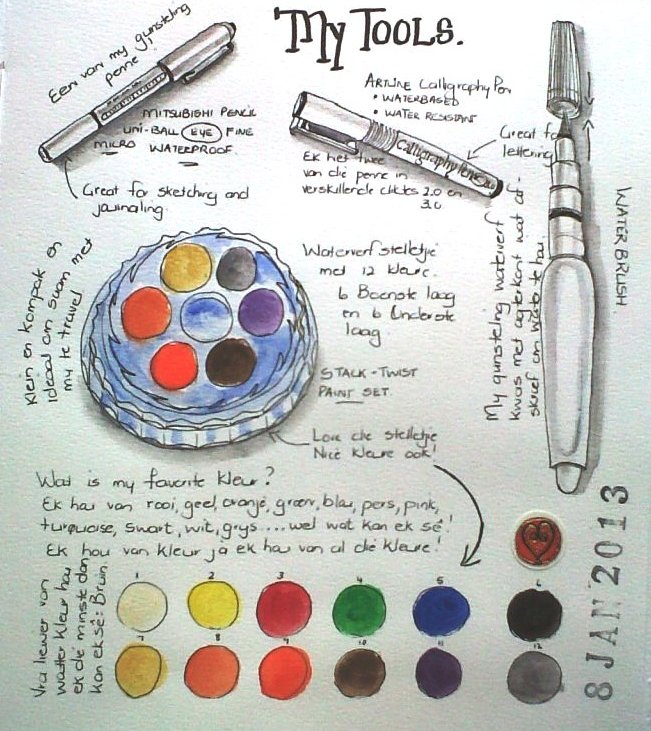 My Tools.
Een van my gunsteling
penne!
MITSUBISHI PENCIL
UNI-BALL EYE FINE
MICRO WATERPROOF.
Great for sketching and
journaling.
ARTLINE Calligraphy Pen
• WATERBASED
• WATER RESISTANT
Calligraphy Pen 2.0
Great for
lettering
Ek het twee
van dié penne in
verskillende diktes 2.0 en
3.0
WATERBRUSH.
My gunsteling waterverf
kwas met agterkant wat af-
skroef om water te hou.
Klein en kompak en
ideaal om saam met
my te travel
Waterverfstelletjie
met 12 kleure.
6 Boonste laag
en 6 Onderste
laag.
STALK-TWIST
PAINT SET.
Love die stelletjie
Nice kleure ook!
Wat is my favorite kleur?
Ek hou van rooi, geel, oranje, groen, blou, pers, pink,
turquoise, swart, wit, grys.... wel wat kan ek sê!
Ek hou van kleur ja ek hou van al dié kleure!
Vra liewer van
watter kleur hou
ek die minste dan
kan ek sê: Bruin.
1 2 3 4 5 6
7 8 9 10 11 12
8 JAN 2013